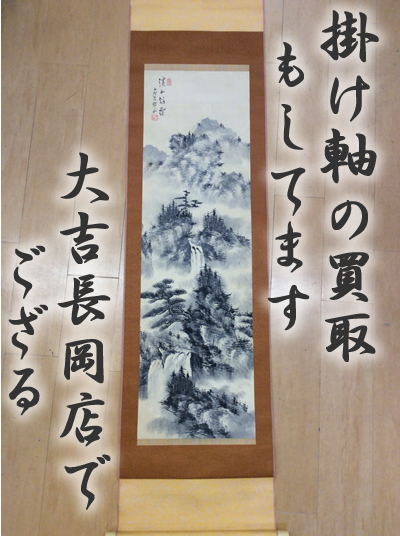 掛け軸の買取
もしてます
大吉長岡店で
ござる